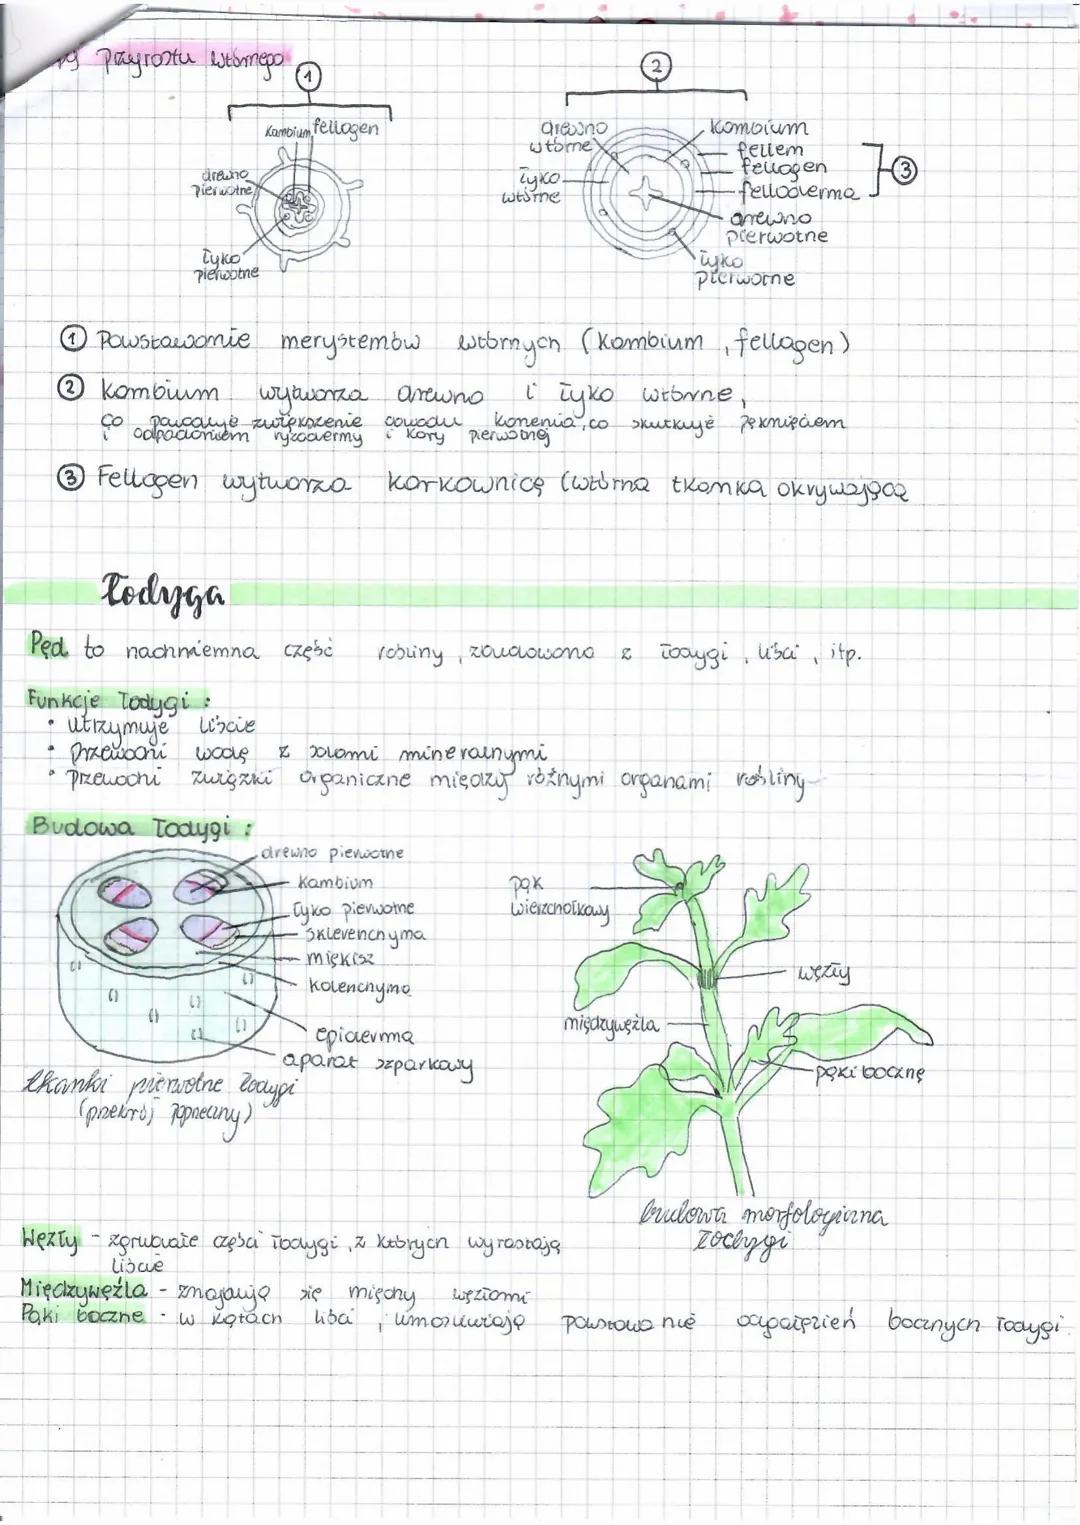 przyrostu wtórnego
1
2
kambium fellogen
drewno
pierwotne
łyko
pierwotne
drewno
wtórne
łyko
wtórne
kambium
fellem
fellogen
felloderma
3
drewno
pierwotne
łyko
pierwotne
1 Powstawanie merystemów wtórnych (kambium, fellogen)
2 Kambium wytwarza drewno i łyko wtórne,
co powoduje zwiększenie obwodu korzenia, co skutkuje pęknięciem
i odpadaniem ryzodermy i kory pierwotnej
3 Fellogen wytwarza korkownicę (wtórna tkanka okrywająca
Łodyga
Pęd to nadziemna część rośliny, zbudowana z łodygi, liści, itp.
Funkcje łodygi:
• utrzymuje liście
• przewodzi wodę z solami mineralnymi
• przewodzi związki organiczne między różnymi organami rośliny
Budowa łodygi:
drewno pierwotne
kambium
łyko pierwotne
sklerenchyma
miękisz
kolenchyma
epiderma
aparat szparkowy
tkanki pierwotne łodygi
(przekrój poprzeczny)
pąk
wierzchołkowy
węzły
międzywęźla
pąki boczne
budowa morfologiczna
łodygi
Węzły - zgrubiałe części łodygi, z których wyrastają
liście
Międzywęźla - znajdują się między węzłami
Pąki boczne - w kątach liści, umożliwiają powstowanie odgałęzień bocznych łodygi.